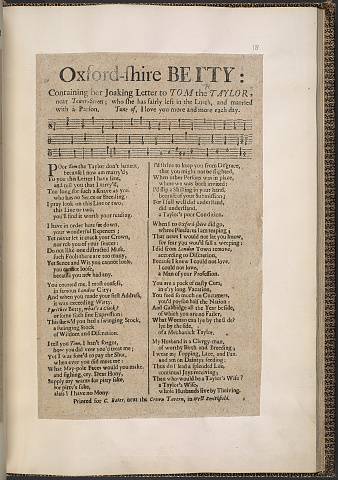 18
Oxford-shire BETTY:
Containing her Joaking Letter to TOM the TAYLOR,
near Tower-street; who she has fairly left in the Lurch, and married
with a Parson. Tune of, I love you more and more each day.
POor Tom the Taylor don't lament,
because I now am marry'd,
To you this Letter I have sent,
and tell you that I tarry'd,
Too long for such a Lover as you
who has no Sence or Breeding
I pray look on this Line or two,
this Line or two,
you'll find it worth your reading.
I have in order here set down,
your wonderful
Yet never let it crack your Crown,
nor rob you of your senses:
Do not like one distracted Muse,
such Fools there are too many,
Yet Sence and Wit you cannot loose,
you cannot loose,
because you never had any.
You courted me, I must confess,
in famous London City;
And when you made your first Address,
it was exceeding Witty,
or some such fine Expression:
This shew'd you had a swinging Stock,
a swinging Stock
of Wisdom and Discretion.
I tell you Tom, I han't forgot,
how you did vow you'd treat me;
Yet I was forc'd to pay the Shot,
when ever you did meet me:
What May-pole Faces would you make,
and sighing, cry, Dear Hony,
Supply my wants for pitty sake,
for pitty's sake,
alas! I have no Mony.
I'd strive to keep you from Disgrace,
that you might not be slighted,
When other Persons was in place,
where we was both invited:
I'd slip a Shilling in your hand,
because of your Submission;
For I full well did understand,
did understand,
a Taylor's poor Condition.
When to Oxford-shire did go,
where Pleasures I am reaping;
That news I would not let you know,
for fear you would fall a weeping:
I did from London Town remove,
according to Discretion,
Because I knew I could not love,
I could not love,
a Man of your Profession.
You are a pack of nasty Curs,
in every long Vacation,
You feed so much on Cucumers,
you'd poyson half the Nation:
And Cabbidge all the Year beside,
of which you are no Failer,
What Woman can lye by the side
lye by the side,
of a Mechanick Taylor.
My Husband is a Clergy-man,
of worthy Birth and Breeding;
I wear my Topping, Lace, and Fan,
and am on Dainties feeding:
Thus do I lead a splendid Life,
continual Joys receiving;
Then who would be a Taylor's Wife?
a Taylor's Wife,
whole Husbands live by Thieving.
Printed for C. Bates, near the Crown Tavern, in West Smithfield.